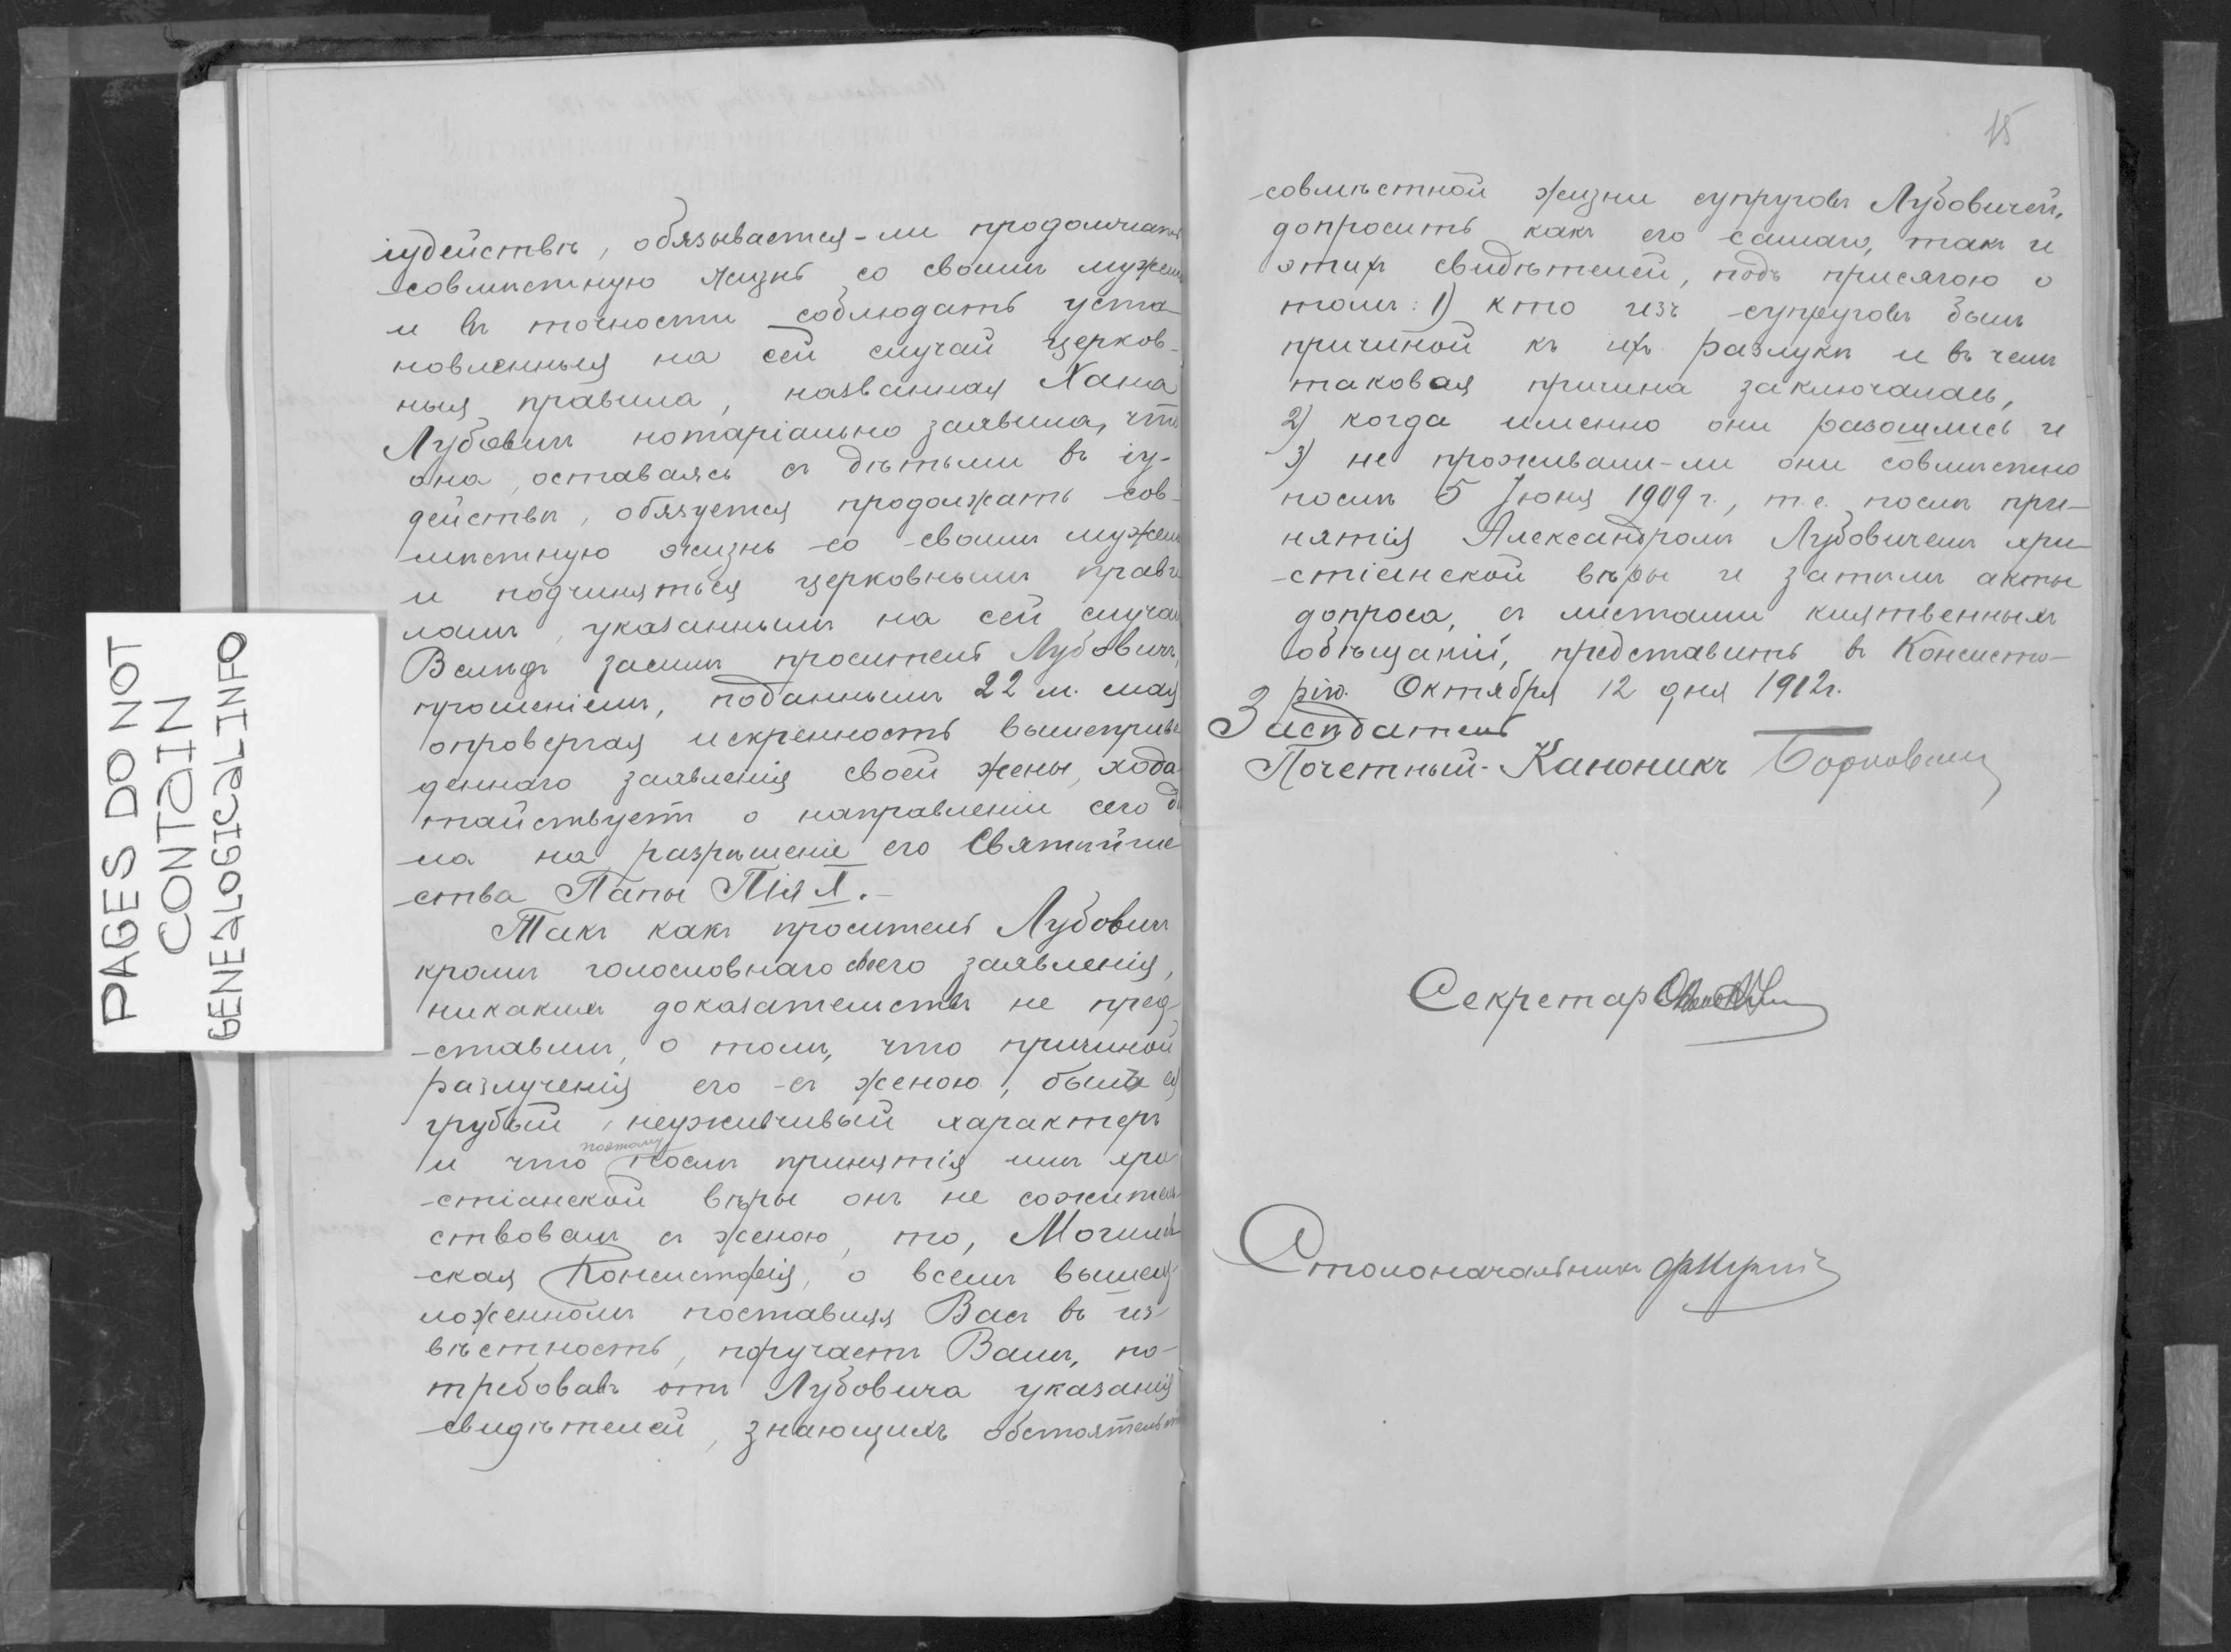 іудействѣ, обязывается-ли продолжать
совмѣстную жизнь со своимъ мужемъ
и въ точности соблюдать уста-
новленныя на сей случай церков-
ныя правила, названная Хана
Лубовичъ нотаріально заявила, что
она, оставаясь съ дѣтьми въ іу-
действѣ, обязуется продолжать сов-
мѣстную жизнь со своимъ мужемъ
и подчиняться церковнымъ прави
ламъ, указаннымъ на сей случай
Вслѣдъ засимъ проситель Лубовичъ,
прошеніемъ, поданнымъ 22 м. мая
опровергая искренность вышеприве
деннаго заявленія своей жены, хода
тайствуетъ о направленіи сего дѣ
ла на разрѣшеніе его Святѣйше
ства Папы Пія X.-
Такъ какъ проситель Лубовичъ
кромѣ голословнаго своего заявленія,
никакихъ доказательствъ не пред-
ставилъ, о томъ, что причиной
разлученія его съ женою, былъ ея
грубый, неуживчивый характеръ
поэтому
и что послѣ принятія имъ хри
стіанской вѣры онъ не сожитель
ствовалъ съ женою, то, Могилев
ская Консисторія, о всемъ вышеиз
ложенномъ поставляя Васъ въ из-
вѣстность, поручаетъ Вамъ, по-
требовавъ отъ Лубовича указанія
свидѣтелей, знающихъ обстоятельств
15
совмѣстной жизни супруговъ Лубовичей,
допросить какъ его самаго, такъ и
этихъ свидѣтелей, подъ присягою о
томъ: 1) кто изъ супруговъ былъ
причиной къ ихъ разлукѣ и въ чемъ
таковая причина заключалась,
2) когда именно они разошлись и
3) не проживали-ли они совмѣстно
послѣ 5 Іюня 1909 г., т.е. послѣ при-
нятія Александромъ Лубовичемъ хри-
стіанской вѣры и затѣмъ акты
допроса, съ листами клятвенныхъ
обѣщаній, представить въ Консисто-
рію. Октября 12 дня 1912 г.
Засѣдатель
Почетный Каноникъ
Секретарь
Столоначальникъ
PAGES DO NOT
CONTAIN
GENEALOGICAL INFO